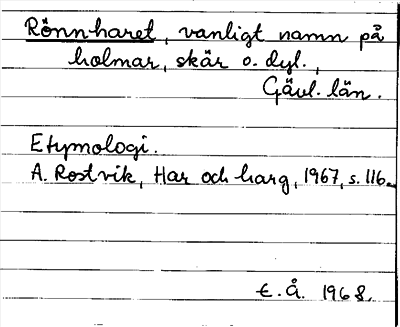 Rönnharet, vanligt namn på
holmar, skär o. dyl.,
Gävl. län.
Etymologi.
A. Rostvik, Har och harg, 1967, s. 116.
E. Å. 1968.